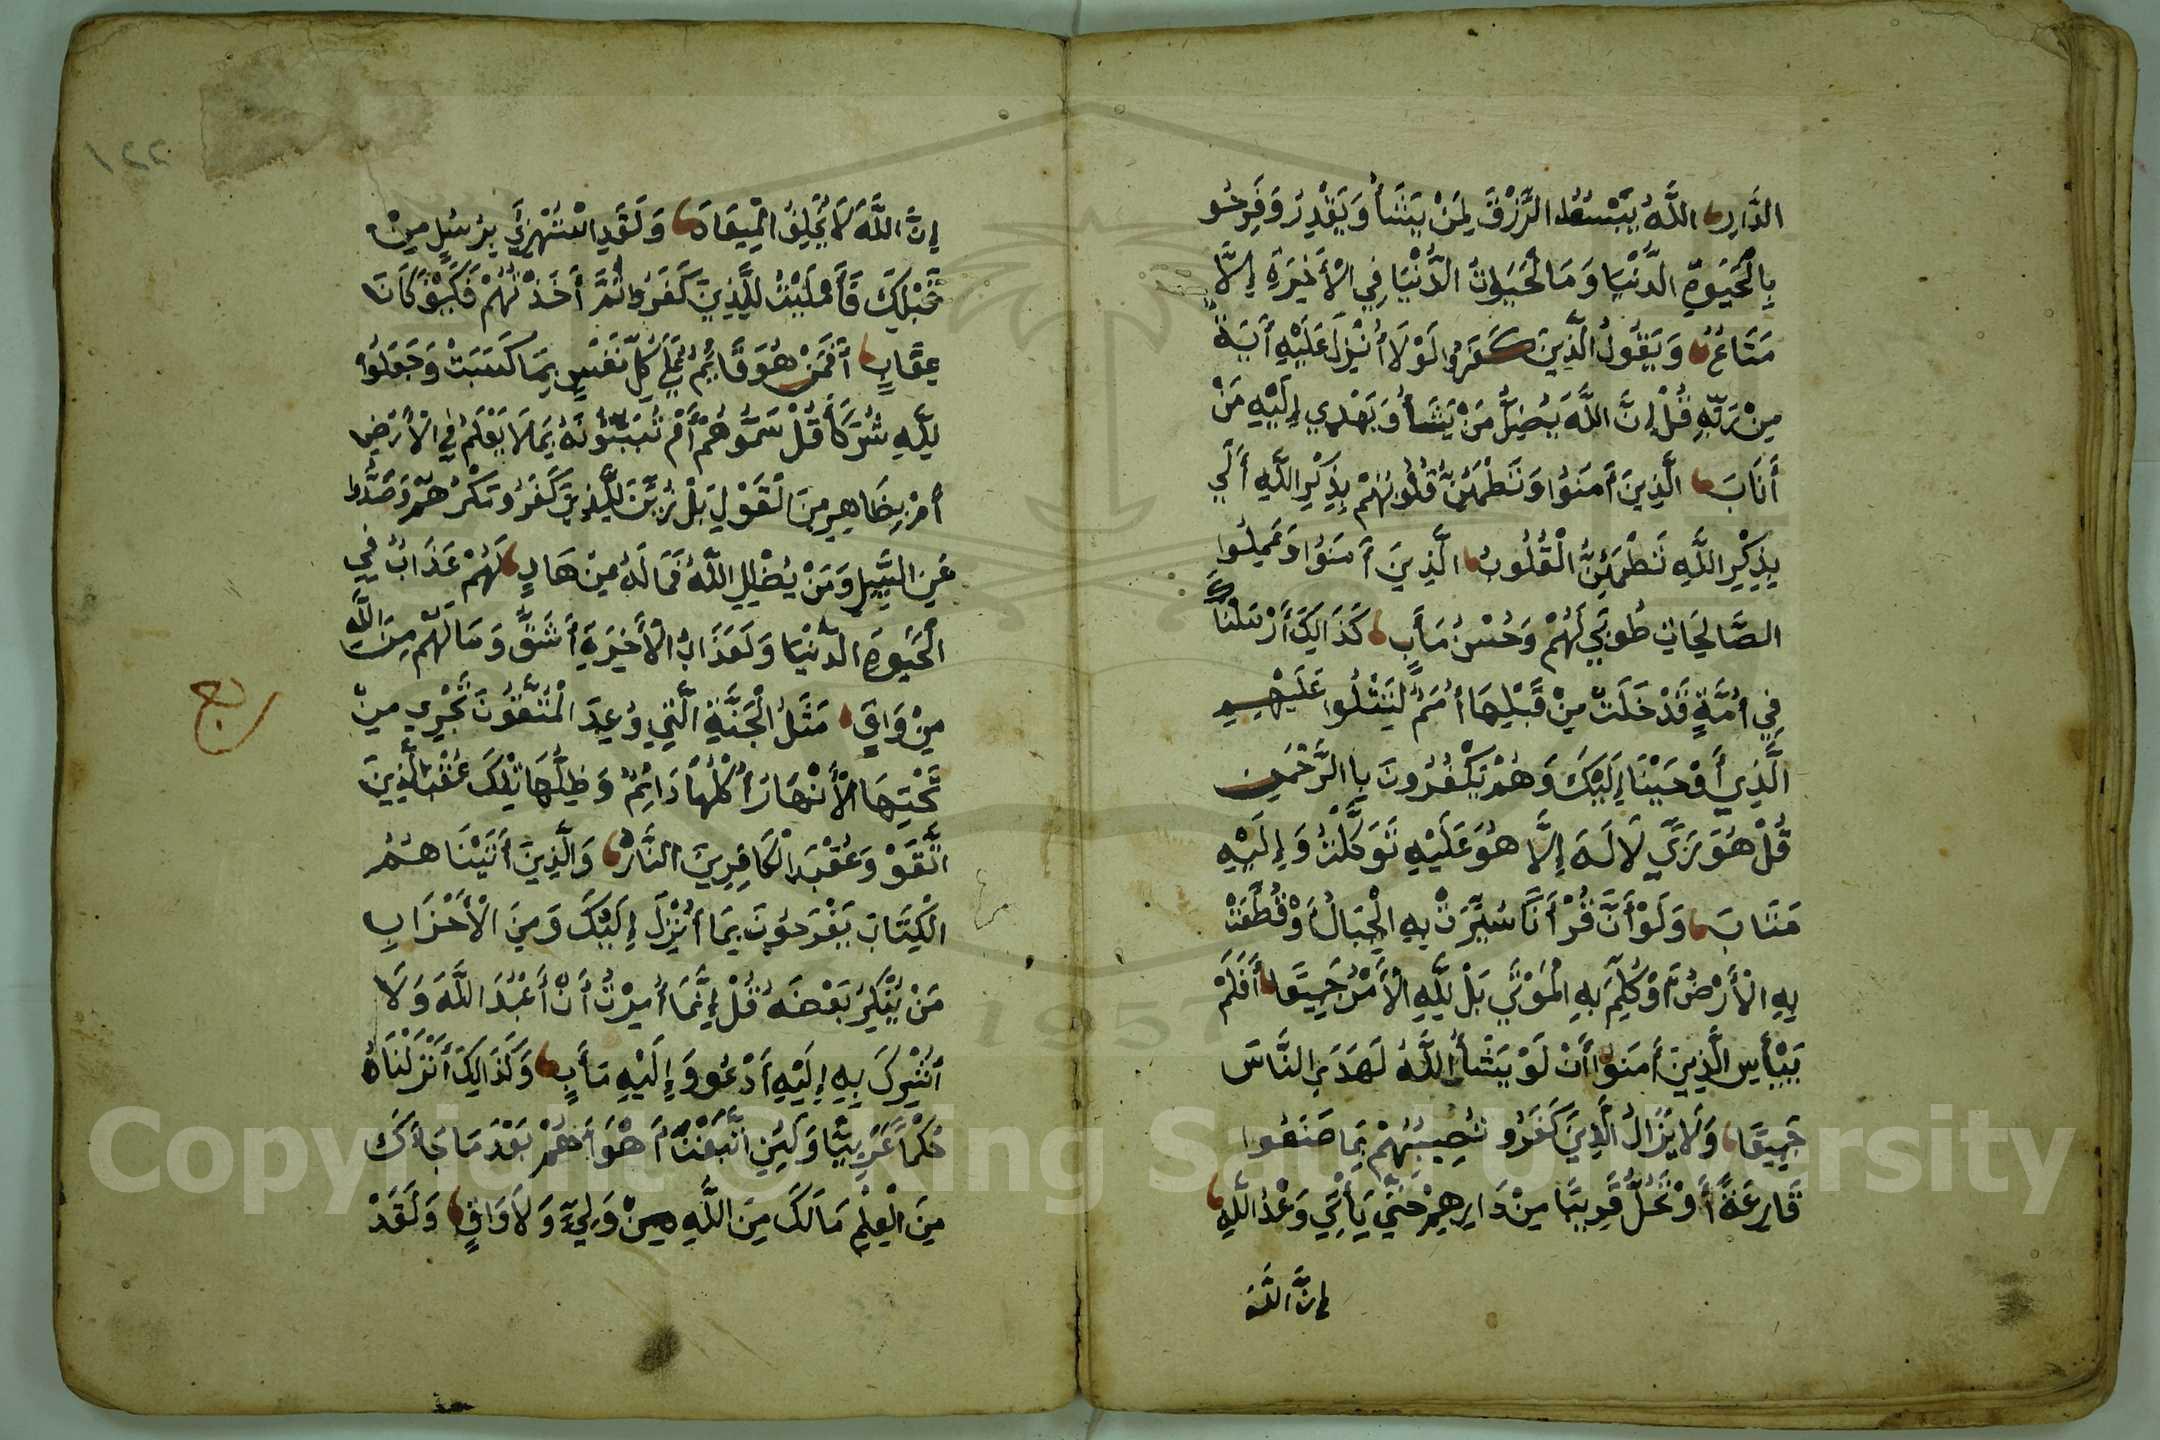 الدَّارِ اللَّهُ يَبْسُطُ الرِّزْقَ لِمَنْ يَشَأُ وَيَقْدِرُ وَفَرِحُو
بِالْحَيَوةِ الدُّنْيَا وَمَا لْحَيَواتُ الدُّنْيَا فِي الْأَخِرَةِ إِلَّا
مَتَاعٌ وَيَقُولُ الَّذِينَ كَفَرُوا لَوْلَا أُنْزِلَ عَلَيْهِ أَيَةٌ
مِنْ رَبِّهِ قُلْ إِنَّ اللَّهَ يُضِلُّ مَنْ يَشَأُ وَيَهْدِي إِلَيْهِ مَنْ
أَنَابَ الَّذِينَ أَمَنُوا وَتَطْمَئِنُّ قُلُوبُهُمْ بِذِكْرِ اللَّهِ أَلَي
بِذِكْرِ اللَّهِ تَطْمَئِنُّ الْقُلُوبُ الَّذِينَ أَمَنُوا وَعَمِلُوا
الصَّالِحَاتِ طُوبَي لَهُمْ وَحُسْنُ مَأَبٍ كَذَالِكَ أَرْسَلْنَاكَ
فِي أُمَّةٍ قَدْ خَلَتْ مِنْ قَبْلِهَا أُمَمٌ لِتَتْلُوا عَلَيْهِمِ
الَّذِي أَوْحَيْنَا إِلَيْكَ وَهُمْ يَكْفُرُونَ بِاالرَّحْمَنِ
قُلْ هُوَ رَبِّي لَا لَهَ إِلَّا هُوَ عَلَيْهِ تَوَكَّلْتُ وَإِلَيْهِ
مَتَابَ وَلَوْ أَنَّ قُرْأَنًا سُيِّرَتْ بِهِ الْجِبَالُ أَوْ قُطِّعَتْ
بِهِ الْأَرْضُ أَوْ كُلِّمَ بِهِ الْمَوْتَي بَلْ لِلَّهِ الْأَمْرُ جَمِيعًا أَفَلَمْ
يَيْأَسِ الَّذِينَ أَمَنُوا أَنْ لَوْ يَشَأُ اللَّهُ لَهَدَي النَّاسَ
جَمِيعًا وَلَا يَزَالُ الَّذِينَ كَفَرُو تُصِيبُهُمْ بِمَا صَنَعُوا
قَارِعَةٌ أَوْ تَحُلُّ قَرِيبًا مِنْ دَارِهِمْ حَتَّي يَأْتِي وَعْدُ اللَّهِ
إِنَّ اللَّهَ
٢٢١
إِنَّ اللَّهَ لَا يُخْلِفُ الْمِيعَادَ وَلَقَدِ اسْتُهْزِئَ بِرُسُلٍ مِنْ
قَبْلِكَ فَأَمْلَيْتُ لِلَّذِينَ كَفَرُوا ثُمَّ أَخَذْتُهُمْ فَكَيْفَ كَانَ
عِقَابِ أَفَمَنْ هُوَ قَايِمٌ عَلَي كُلِّ نَفْسٍ بِمَا كَسَبَتْ وَجَعَلُوا
لِلَّهِ شُرَكَأَ قُلْ سَمُّوهُمْ أَمْ تُنَبِّئُونَهُ بِمَا لَا يَعْلَمُ فِي الْأَرْضِ
أَمْ بِظَاهِرٍ مِنَ الْقَوْلِ بَلْ زُيِّنَ لِلَّذِينَ كَفَرُو مَكْرُهُمْ وَصَدُّوا
عَنِ السَّبِيلِ وَمَنْ يُضْلِلِ اللَّهُ فَمَا لَهُ مِنْ هَادٍ لَهُمْ عَذَابٌ فِي
الْحَيَوةِ الدُّنْيَا وَلَعَذَابُ الْأَخِرَةِ أَشَقُّ وَمَا لَهُمْ مِنَ اللَّهِ
مِنْ وَاقٍ مَثَلُ الْجَنَّةِ الَّتِي وُعِدَ الْمُتَّقُونَ تَجْرِي مِنْ
ربع
تَحْتِهَا الْأَنْهَارُ أُكْلُهَا دَائِمٌ وَظِلُّهَا تِلْكَ عُقْبَا الَّذِينَ
اتَّقَوْ وَعُقْبَا الْكَافِرِينَ النَّارُ وَالَّذِينَ أَتَيْنَاهُمُ
الْكِتَابَ يَفْرَحُونَ بِمَا أُنْزِلَ إِلَيْكَ وَمِنَ الْأَحْزَابِ
مَنْ يُنْكِرُ بَعْضَهُ قُلْ إِنَّمَا أُمِرْتُ أَنْ أَعْبُدَ اللَّهَ وَلَا
أُشْرِكَ بِهِ إِلَيْهِ أَدْعُو وَإِلَيْهِ مَأَبٍ وَكَذَالِكَ أَنْزَلْنَاهُ
حُكْمًا عَرَبِيًّا وَلَئِنِ اتَّبَعْتَ أَهْوَاءَهُمْ بَعْدَ مَا جَاءَكَ
مِنَ الْعِلْمِ مَا لَكَ مِنَ اللَّهِ مِنْ وَلِيٍّ وَلَا وَاقٍ وَلَقَدْ
1957
Copyright © King Saud University